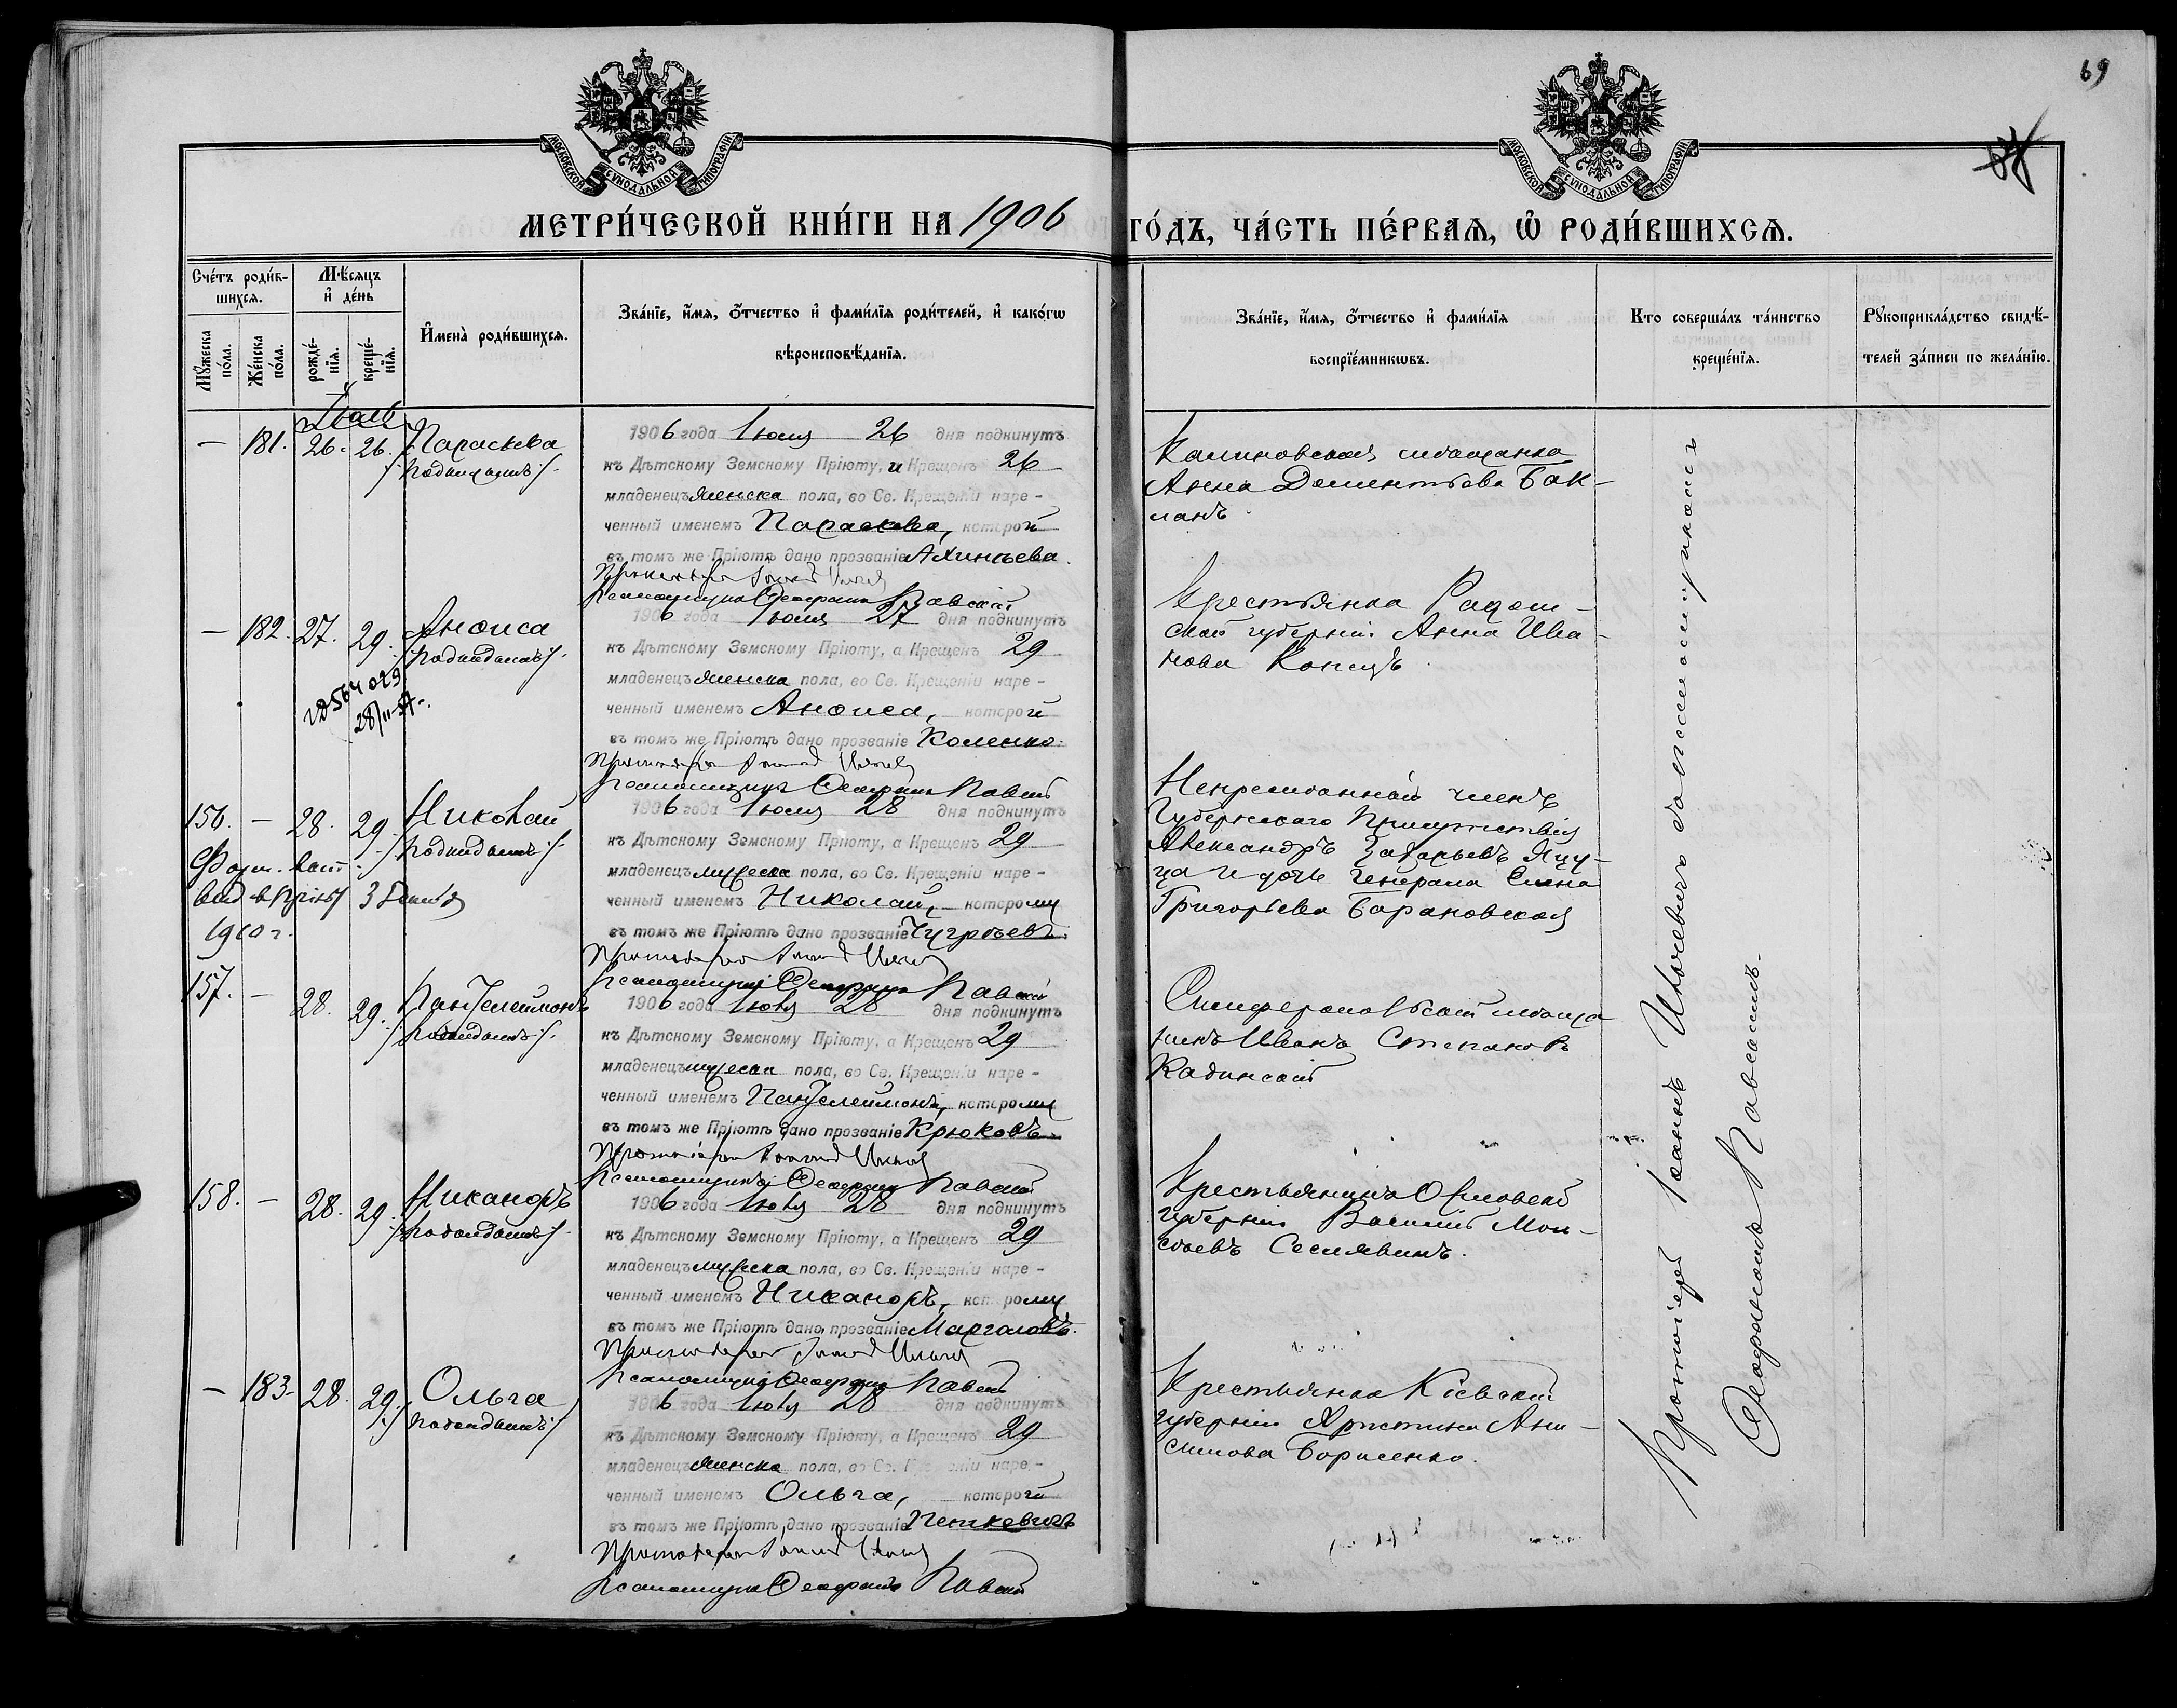 69
МОСКОВСКОЙ СѴНОДАЛЬНОЙ ТИПОГРАФІИ
МОСКОВСКОЙ СѴНОДАЛЬНОЙ ТИПОГРАФІИ
МЕТРИ́ЧЕСКОЙ КНИ́ГИ НА 1906 ГО́ДЪ, ЧА́СТЬ ПЕ́РВАѦ, Ѡ РОДИ́ВШИХСѦ.
Сче́тъ роди́в-
шихсѧ.
Мꙋ́жеска по́ла.
Же́нска по́ла.
Мѣ́сѧцъ
и҆ де́нь
рожде́-
нїѧ.
креще́-
нїѧ.
И҆мена̀ роди́вшихсѧ.
Зва́нїе, и҆́мѧ, ѻ҆́тчество и҆ фами́лїѧ роди́телей, и҆ како́гѡ
вѣроисповѣ́данїѧ.
Зва́нїе, и҆́мѧ, ѻ҆́тчество и҆ фами́лїѧ
воспрїе́мникѡвъ.
Кто соверша́лъ та́инство
креще́нїѧ.
Рꙋкоприкла́дство свидѣ́-
телей за́писи по жела́нїю.
Іюль
— 181. 26. 26. Параскева
1906 года Іюля 26 дня подкинутъ
къ Дѣтскому Земскому Пріюту, и Крещенъ 26
младенецъ женска пола, во Св. Крещеніи наре-
ченный именемъ Параскева, которой
въ томъ же Пріютѣ дано прозваніе Ахинъева.
Псаломщикъ Ѳеофанъ Павскій
Калиновская мѣщанка
Анна Дементьева Бак-
ланъ.
— 182. 27. 29. Аноиса
/:подкидышъ:/.
1906 года Іюля 27 дня подкинутъ
къ Дѣтскому Земскому Пріюту, а Крещенъ 29
младенецъ женска пола, во Св. Крещеніи наре-
ченный именемъ Аноиса, которой
въ томъ же Пріютѣ дано прозваніе Коленко.
Псаломщикъ Ѳеофанъ Павскій
564029
Крестьянка Радом-
ской губерніи Анна Ива-
нова Копецъ.
156. — 28. 29. Николай
/:подкидышъ:/.
3
1910 г.
1906 года Іюля 28 дня подкинутъ
къ Дѣтскому Земскому Пріюту, а Крещенъ 29
младенецъ мужеска пола, во Св. Крещеніи наре-
ченный именемъ Николай, которому
въ томъ же Пріютѣ дано прозваніе Чугръевъ.
Псаломщикъ Ѳеофанъ Павскій
Непремѣнный членъ
Губернскаго Присутствія
Александръ Захарьевъ Яцу-
ца и дочь Генерала Елена
Григорьева Барановская
157. — 28. 29. Пантелеимонъ
/:подкидышъ:/.
1906 года Іюля 28 дня подкинутъ
къ Дѣтскому Земскому Пріюту, а Крещенъ 29
младенецъ мужеска пола, во Св. Крещеніи наре-
ченный именемъ Пантелеимонъ, которому
въ томъ же Пріютѣ дано прозваніе Крюковъ.
Псаломщикъ Ѳеофанъ Павскій
Симферопольскій мѣща
нинъ Иванъ Степановъ
Кадинскій
158. — 28. 29. Никаноръ
/:подкидышъ:/.
1906 года Іюля 28 дня подкинутъ
къ Дѣтскому Земскому Пріюту, а Крещенъ 29
младенецъ мужеска пола, во Св. Крещеніи наре-
ченный именемъ Никаноръ, которому
въ томъ же Пріютѣ дано прозваніе Марголовъ.
Псаломщикъ Ѳеофанъ Павскій
Крестьянинъ Орловской
губерніи Василій Мои-
сѣевъ Сеславинъ.
— 183. 28. 29. Ольга
/:подкидышъ:/
1906 года Іюля 28 дня подкинутъ
къ Дѣтскому Земскому Пріюту, а Крещенъ 29
младенецъ женска пола, во Св. Крещеніи наре-
ченный именемъ Ольга, которой
въ томъ же Пріютѣ дано прозваніе Петкевичъ
Псаломщикъ Ѳеофанъ Павскій
Крестьянка Кіевской
губерніи Христина Ани-
симова Борисенко.
Протоіерей Іоаннъ Ильчевичъ съ псаломщикомъ
Ѳеофаномъ Павскимъ.